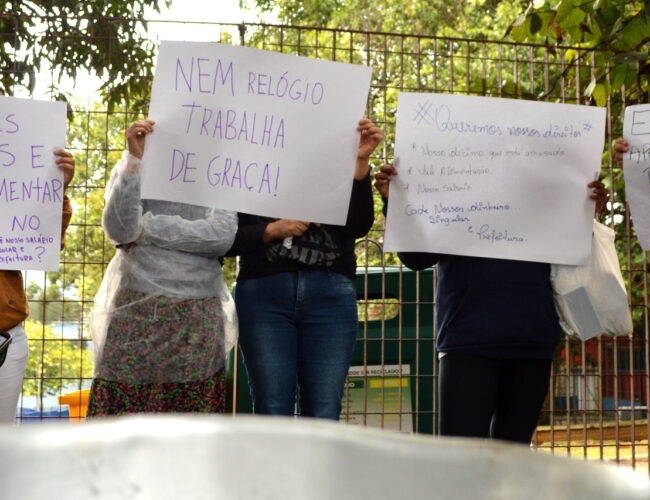 S E
MENTAR
NO
NOSSO SALÁRIO
E
?
NEM RELÓGIO
TRABALHA
DE GRAÇA!
* Queremos nossos direitos
* Nosso décimo que está atrasado
* Vale Alimentação
* Nosso Salário
Cade Nossos dinheiro...
Singular
e Prefeitura
E
?